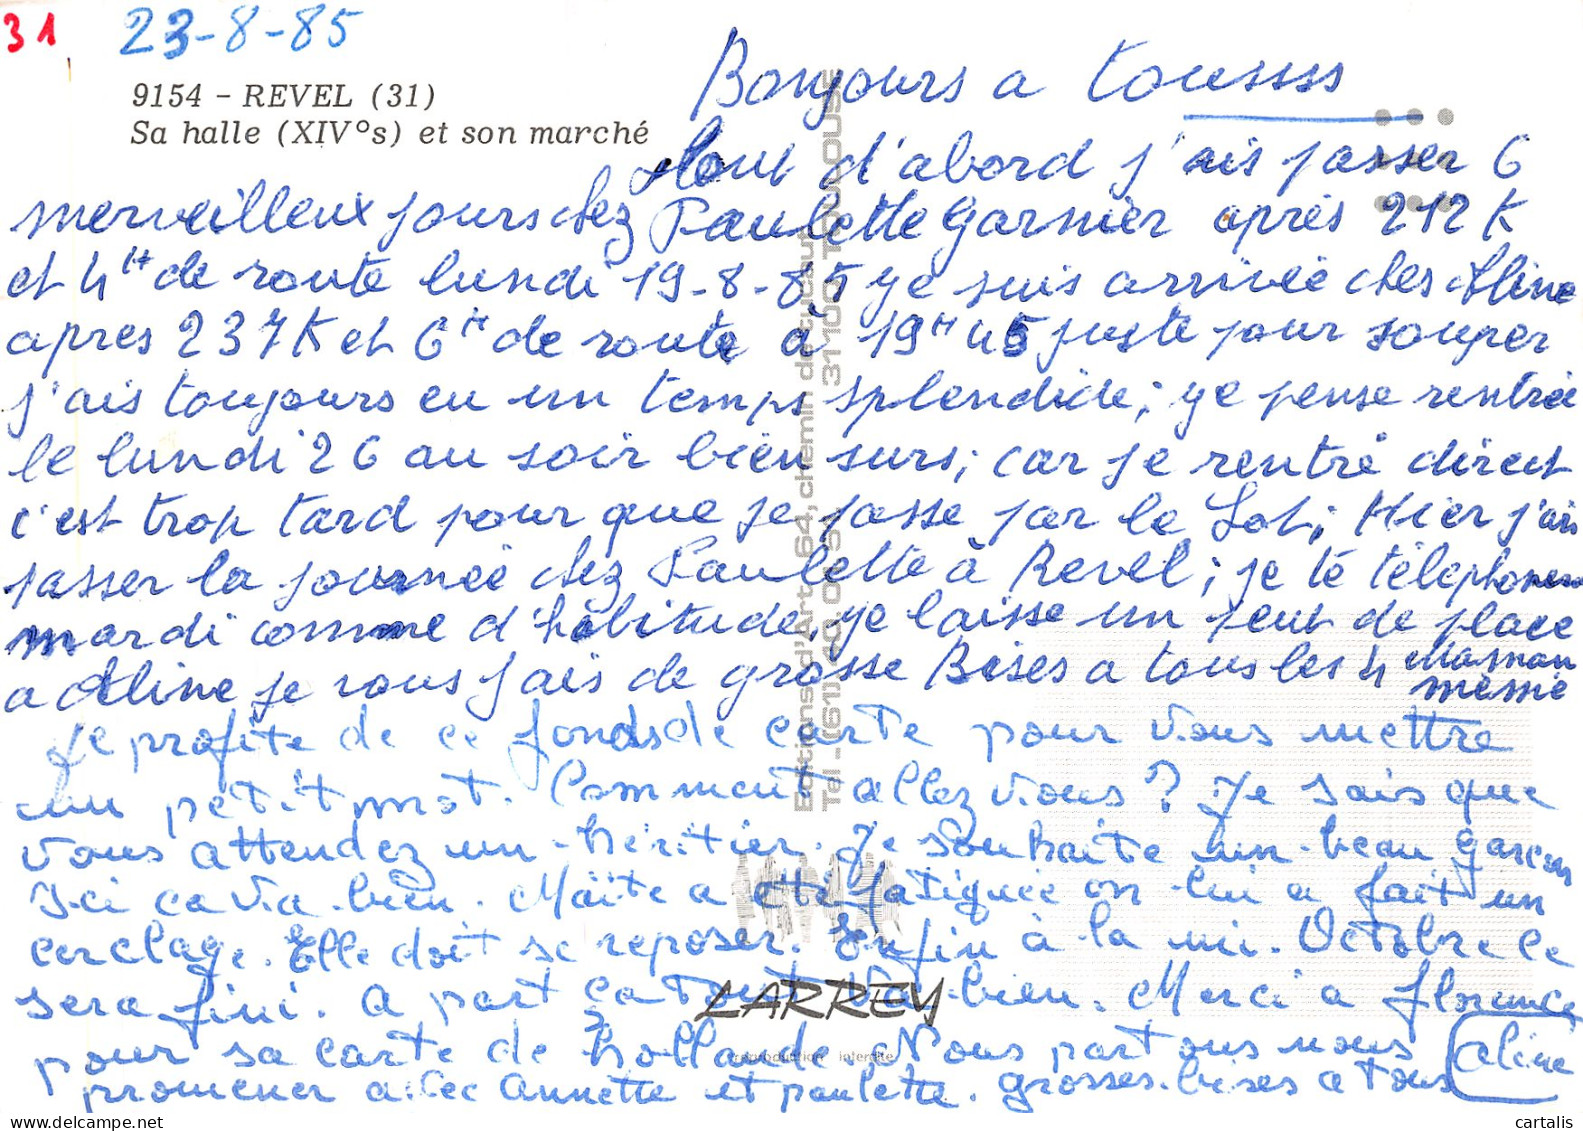 31 23-8-85
9154 - REVEL (31)
Sa halle (XIV°s) et son marché
Bonjours a tousssss
tout d'abord j'ais passer 6
merveilleux jours chez Paulette Garnier après 212 K
et 4H de route lundi 19-8-85 ye suis arrivée ches Aline
apres 237 K et 6H de route à 19H45 juste pour souper
j'ais toujours eu un temps splendide; ye pense rentrée
le lundi 26 au soir bien surs; car je rentré direct
c'est trop tard pour que je passe par le Lot; Hier j'ais
passer la journée chez Paulette à Revel; je té télephonerai
mardi comme d'habitude, ye laisse un peut de place
a Aline je vous fais de grosse Bises a tous les 4 Maman
mémé
Je profite de ce fonds de carte pour vous mettre
un petit mot. Comment allez vous ? Je sais que
vous attendez un héritier. Je souhaite un beau garcon
Ici ca va bien. Maïte a eté fatiguée on lui a fait un
cerclage. Elle doit se reposer. Enfin à la mi-Octobre ce
sera fini. a part ça tout va bien. Merci a florence
pour sa carte de hollande. Nous partons nous
promener avec annette et paulette. grosses bises a tous
aline
Editions d'Art 64, chemin de
Tel - (61) 31100 TOULOUSE
LARREY
reproduction interdite
cartalis